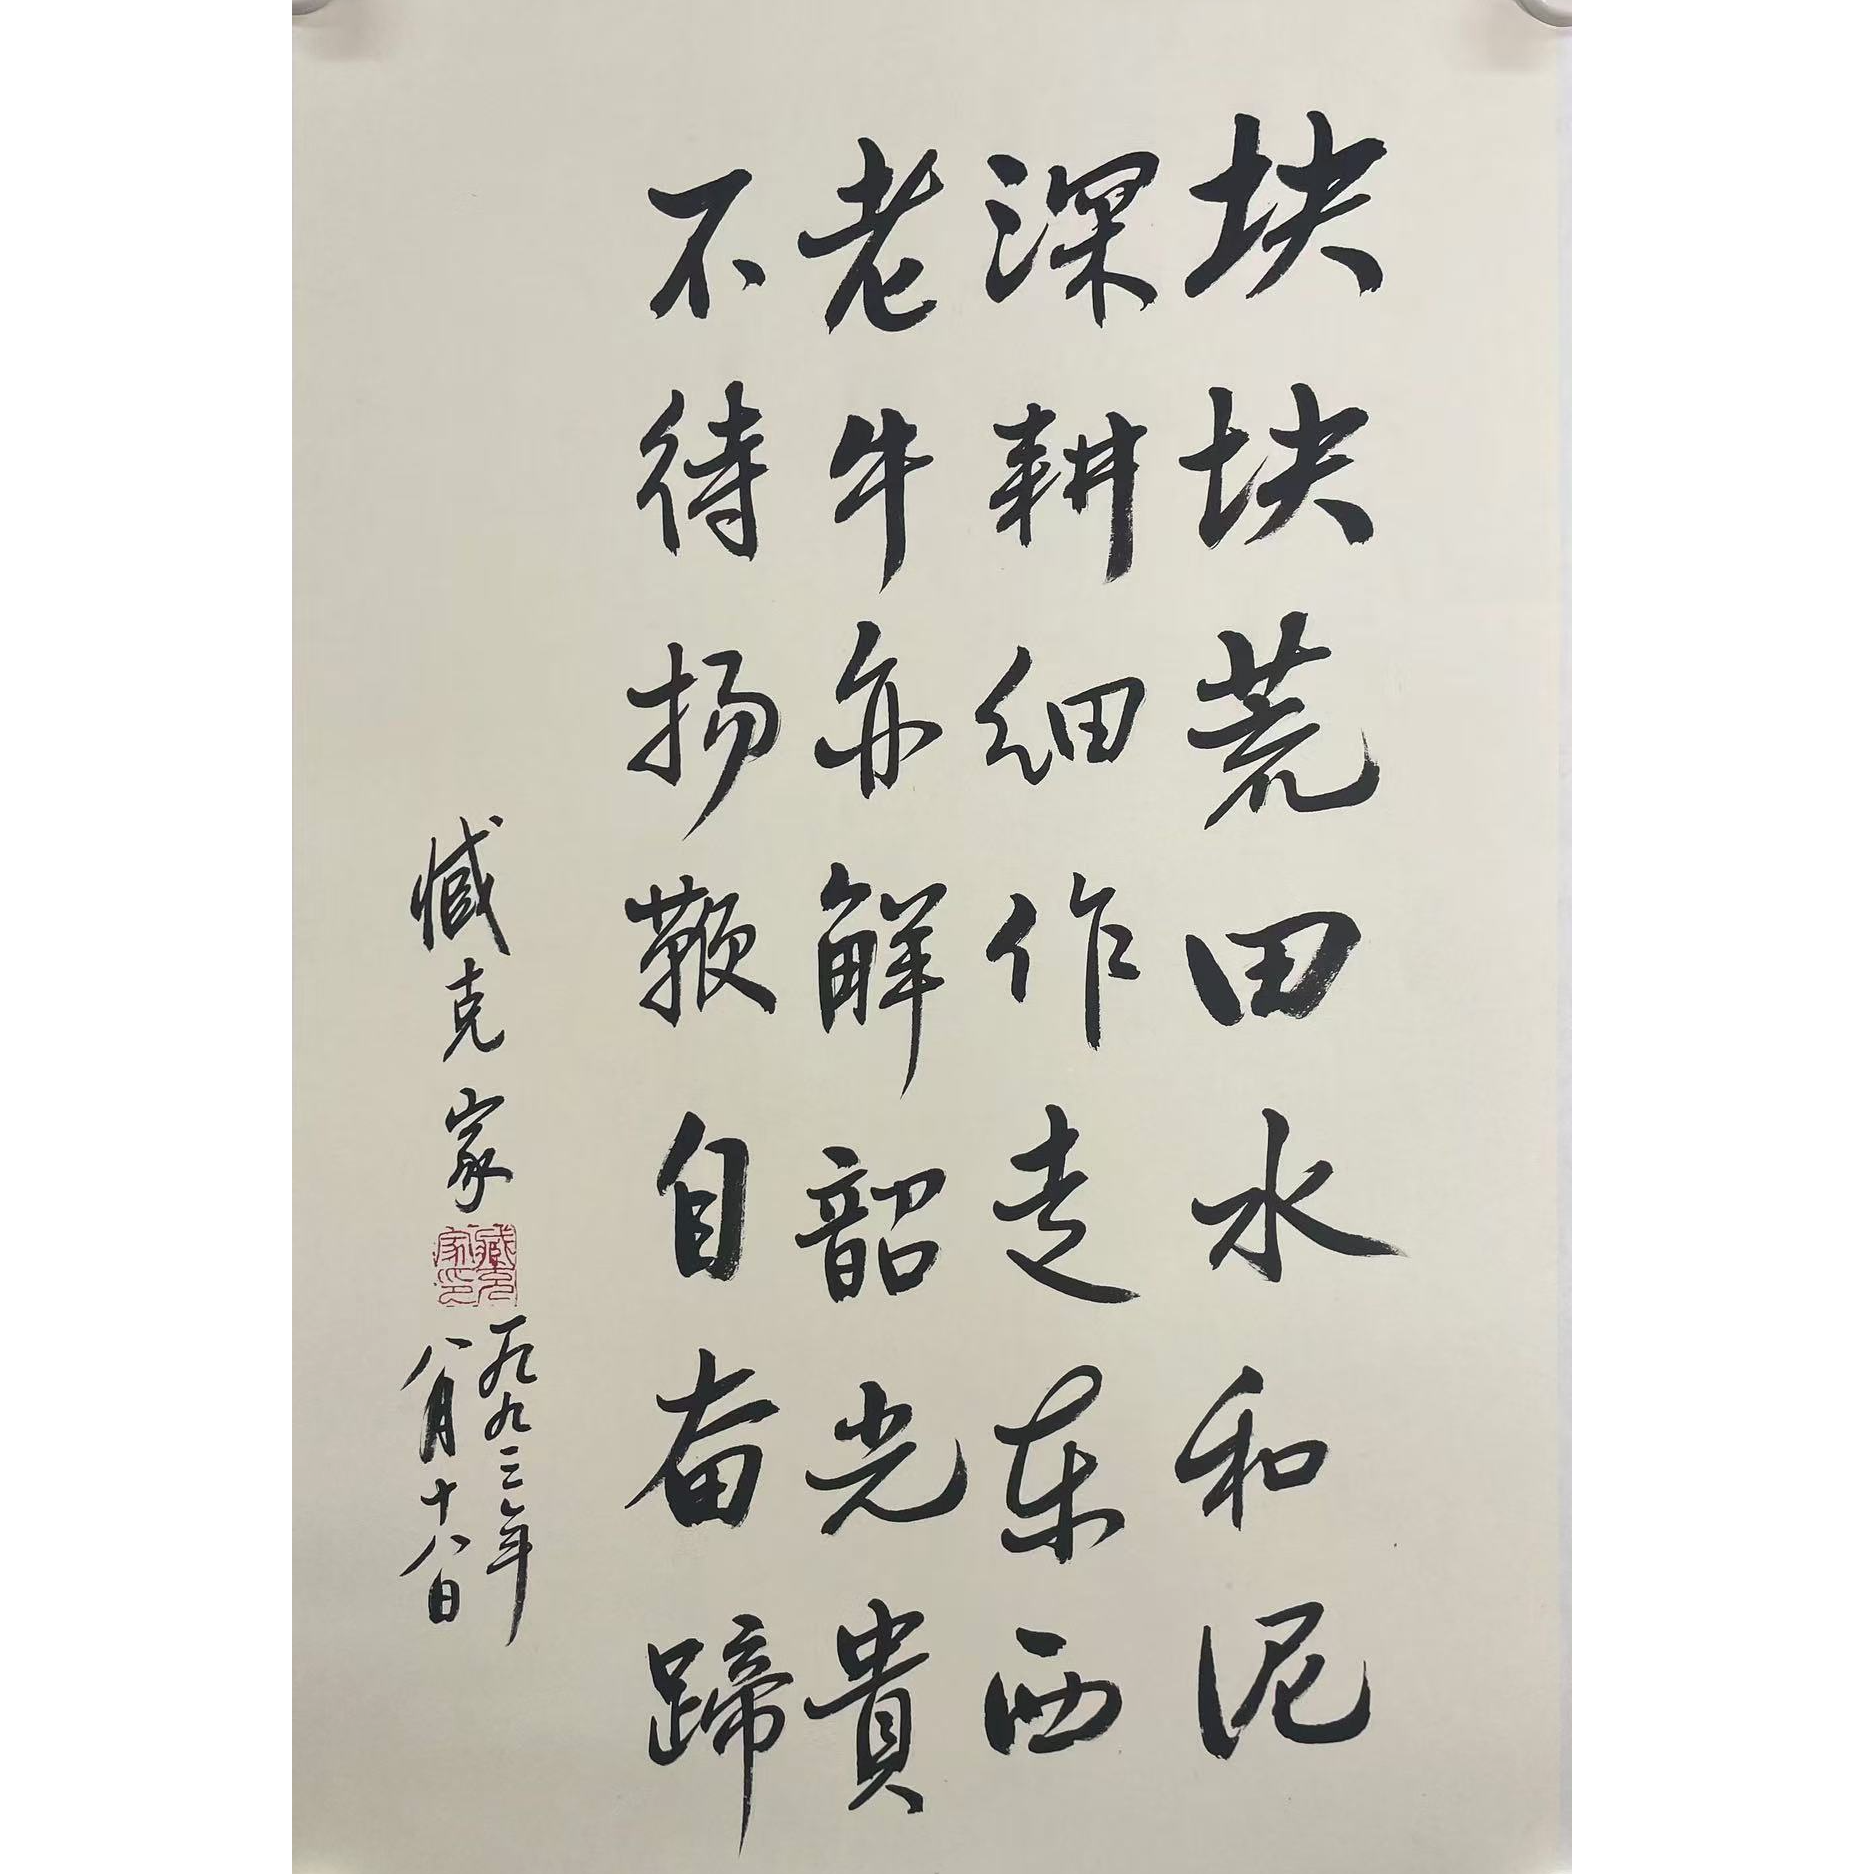 块块荒田水和泥
深耕细作走东西
老牛亦解韶光贵
不待扬鞭自奋蹄
臧克家
臧克家印
一九九三年
八月十八日